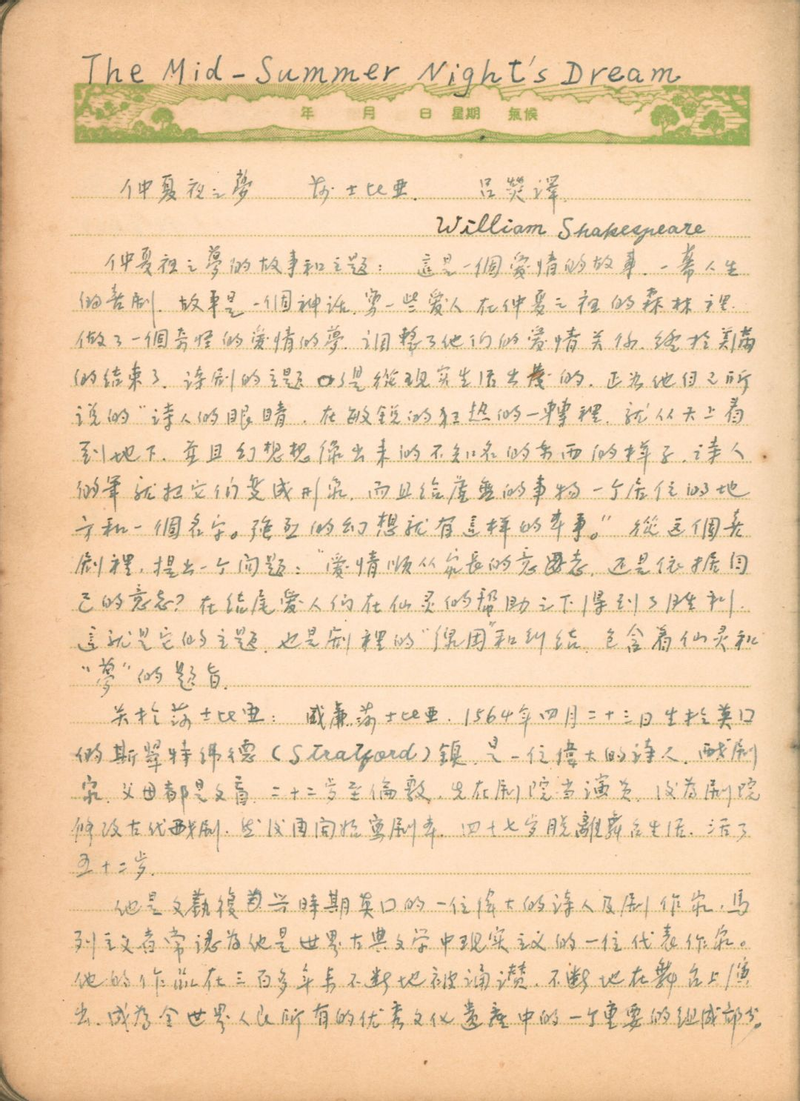 The Mid-Summer Night's Dream
年 月 日 星期 氣候
仲夏夜之夢 莎士比亚. 吕熒譯.
William Shakespeare
仲夏夜之夢的故事和主题: 這是一個愛情的故事. 一幕人生
的喜剧. 故事是一個神话. 寫一些爱人在仲夏之夜的森林裡.
做了一個奇怪的愛情的夢. 调整了他们的爱情关係. 终於美滿
的结束了. 诗剧的主题 是從现实生活出發的. 正为他自己所
说的“诗人的眼睛. 在敏锐的狂热的一轉裡. 就从天上看
到地下. 並且幻想想像出来的不知名的东西的样子. 诗人
的笔就把它们变成形象. 而且给虚無的事物一个居住的地
方和一個名字。强烈的幻想就有這样的本事。” 從这個喜
剧裡. 提出一个问题: “爱情顺从家長的意志. 还是依据自
己的意志? 在结尾爱人们在仙灵的帮助之下得到了胜利.
這就是它的主题. 也是剧裡的 和纠结. 包含着仙灵和
“夢”的题旨.
关於莎士比亚: 威廉莎士比亚. 1564年四月二十三日生於英囗
的斯翠特 德 (Stratford) 鎮. 是一位偉大的诗人. 戏剧
家. 父母都是文盲. 二十二岁至倫敦. 先在剧院当演员. 後为剧院
修改古代戏剧. 然後再開始寫剧本. 四十七岁脱離舞台生活. 活了
五十二岁.
他是文藝復兴時期英囗的一位偉大的诗人及剧作家. 馬
列主义者常認为他是世界古典文学中现实主义的一位代表作家。
他的作品在三百多年来不断地被诵讃. 不断地在舞台上演
出. 成为全世界人民所有的优秀文化遗産中的一个重要的组成部分.